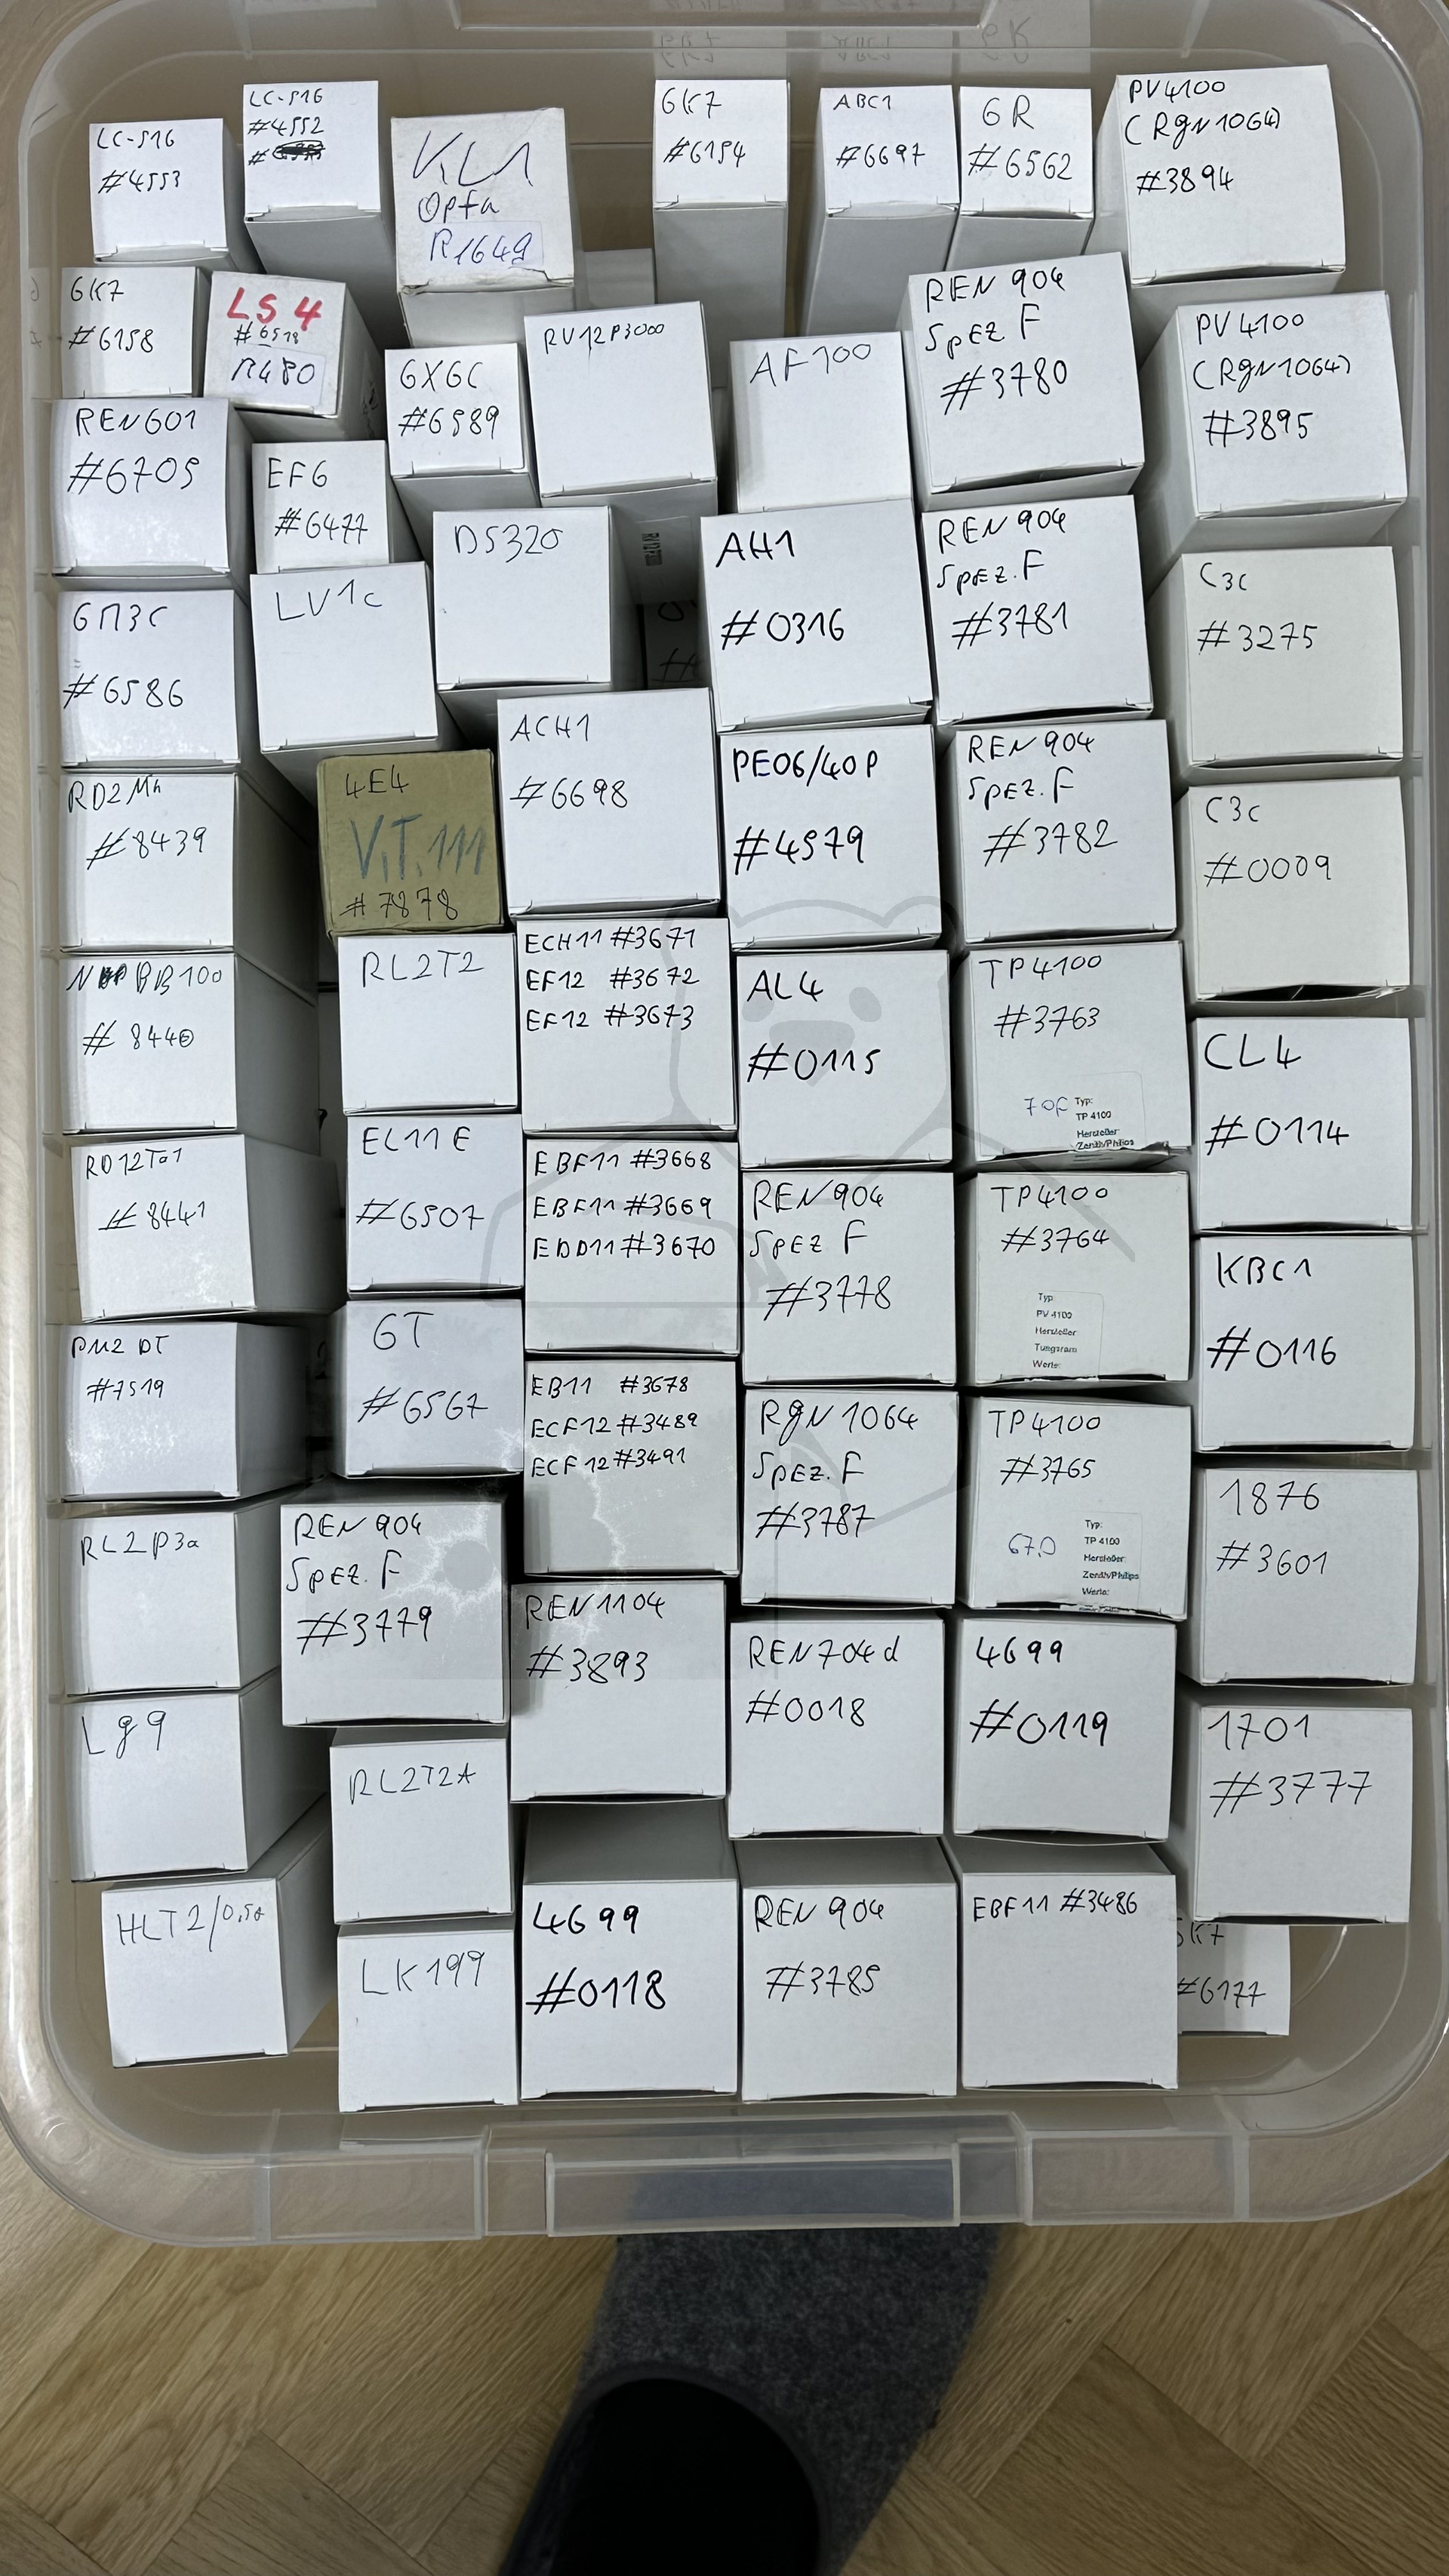 LC-516
#4553
LC-516
#4552
#
KL1
Opta
R1649
6K7
#6154
ABC1
#6697
6R
#6562
PV4100
(RgN1064)
#3894
6K7
#6158
LS4
#6518
R480
6X6C
#6589
RV12P3000
AF100
REN 904
Spez F
#3780
PV4100
(RgN1064)
#3895
REN601
#6705
EF6
#6477
DS320
AH1
#0316
REN 904
Spez. F
#3781
C3c
#3275
6П3C
#6586
LV1c
ACH1
#6698
PE06/40P
#4579
REN 904
Spez. F
#3782
C3c
#0009
RD2Mh
#8439
4E4
V.T.111
#7878
RL2T2
ECH11 #3671
EF12 #3672
EF12 #3673
AL4
#0115
TP4100
#3763
Typ:
TP 4100
Hersteller
Zenith/Philips
CL4
#0114
BB100
#8440
EL11E
#6507
EBF11 #3668
EBF11 #3669
EDD11 #3670
REN 904
Spez F
#3778
TP4100
#3764
Typ
PV 4100
Hersteller
Tungsram
Werte:
KBC1
#0116
RD12Ta1
#8441
6T
#6567
EB11 #3678
ECF12 #3489
ECF12 #3491
RgN 1064
Spez. F
#3787
TP4100
#3765
67,0
Typ:
TP 4100
Hersteller:
Zenith/Philips
Werte:
1876
#3601
DT
#7519
REN 904
Spez. F
#3779
REN1104
#3893
REN704d
#0018
4699
#0119
1701
#3777
RL2P3a
RL2T2A
4699
#0118
REN 904
#3785
EBF11 #3486
#6177
Lg9
LK199
HLT2/0,5a